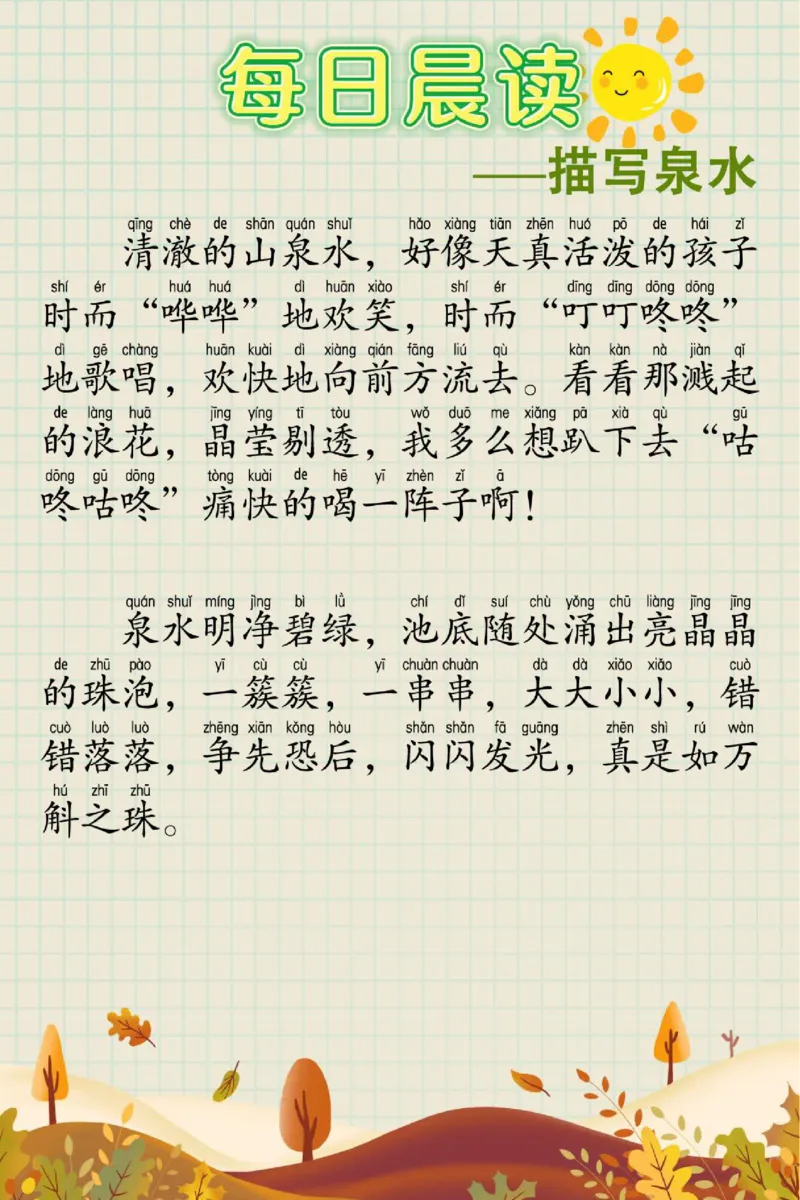 每日晨读
——描写泉水
qīng chè de shān quán shuǐ hǎo xiàng tiān zhēn huó pō de hái zǐ
清澈的山泉水，好像天真活泼的孩子
shí ér huá huá dì huān xiào shí ér dīng dīng dōng dōng
时而“哗哗”地欢笑，时而“叮叮咚咚”
dì gē chàng huān kuài dì xiàng qián fāng liú qù kàn kàn nà jiàn qǐ
地歌唱，欢快地向前方流去。看看那溅起
de làng huā jīng yíng tī tòu wǒ duō me xiǎng pā xià qù gū
的浪花，晶莹剔透，我多么想趴下去“咕
dōng gū dōng tòng kuài de hē yī zhèn zǐ ā
咚咕咚”痛快的喝一阵子啊！
quán shuǐ míng jìng bì lǜ chí dǐ suí chù yǒng chū liàng jīng jīng
泉水明净碧绿，池底随处涌出亮晶晶
de zhū pào yī cù cù yī chuàn chuàn dà dà xiǎo xiǎo cuò
的珠泡，一簇簇，一串串，大大小小，错
cuò luò luò zhēng xiān kǒng hòu shǎn shǎn fā guāng zhēn shì rú wàn
错落落，争先恐后，闪闪发光，真是如万
hú zhī zhū
斛之珠。